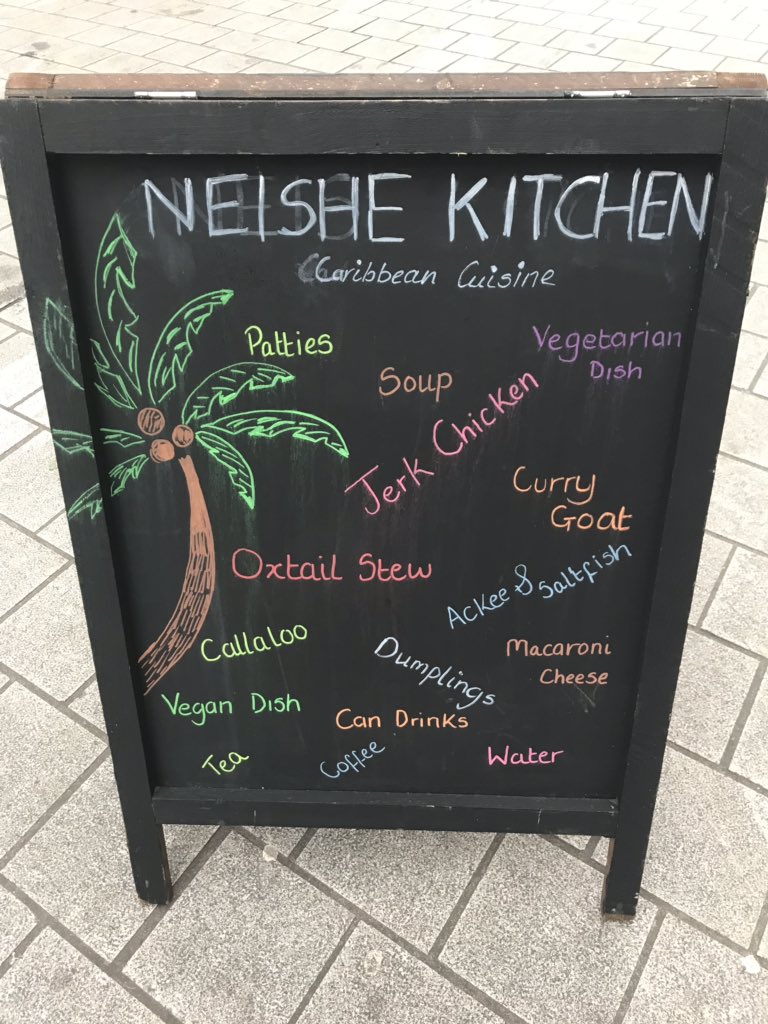 NEISHE KITCHEN
Caribbean Cuisine
Patties
Vegetarian
Dish
Soup
Jerk Chicken
Curry
Goat
Oxtail Stew
Ackee & Saltfish
Callaloo
Dumplings
Macaroni
Cheese
Vegan Dish
Can Drinks
Tea
Coffee
Water